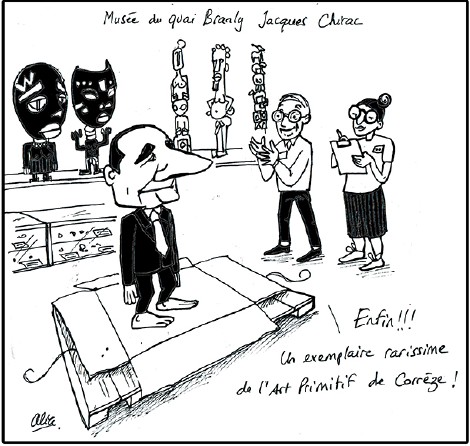 Musée du quai Branly Jacques Chirac
Enfin!!!
Un exemplaire rarissime
de l'Art Primitif de Corrèze !
Alice